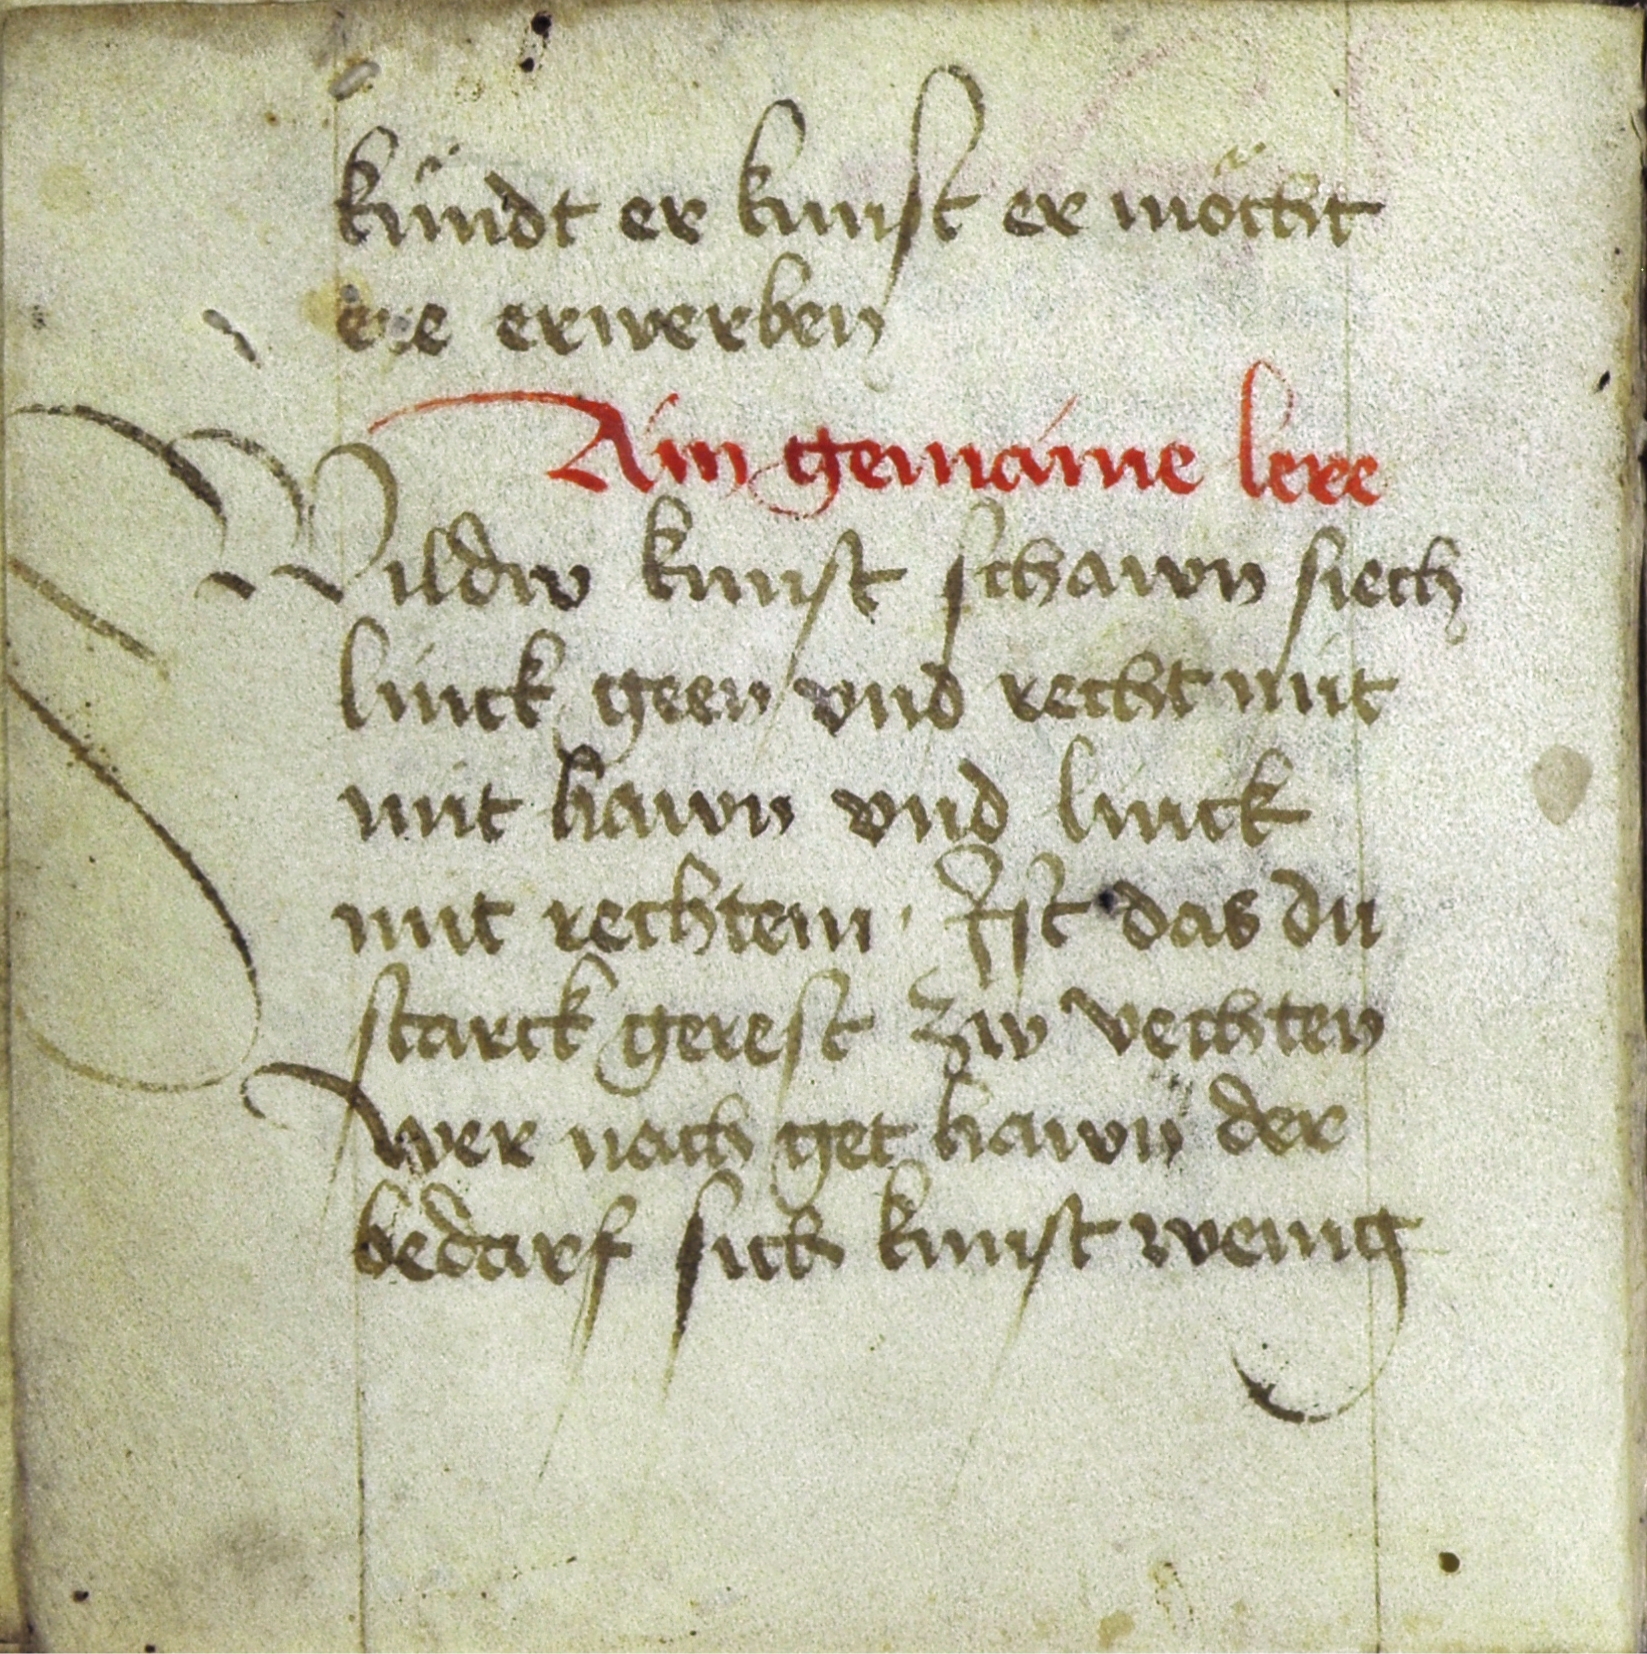 kündt er kunst er möcht
ere erwerben
Ain gemaine lere
Wildw kunst schawn siech
linck geen vnd recht mit
mit hawn vnd linck
mit rechtem · Ist das du
starck gerest zw vechten
wer nach get hawn der
bedarf sich kunst wenig